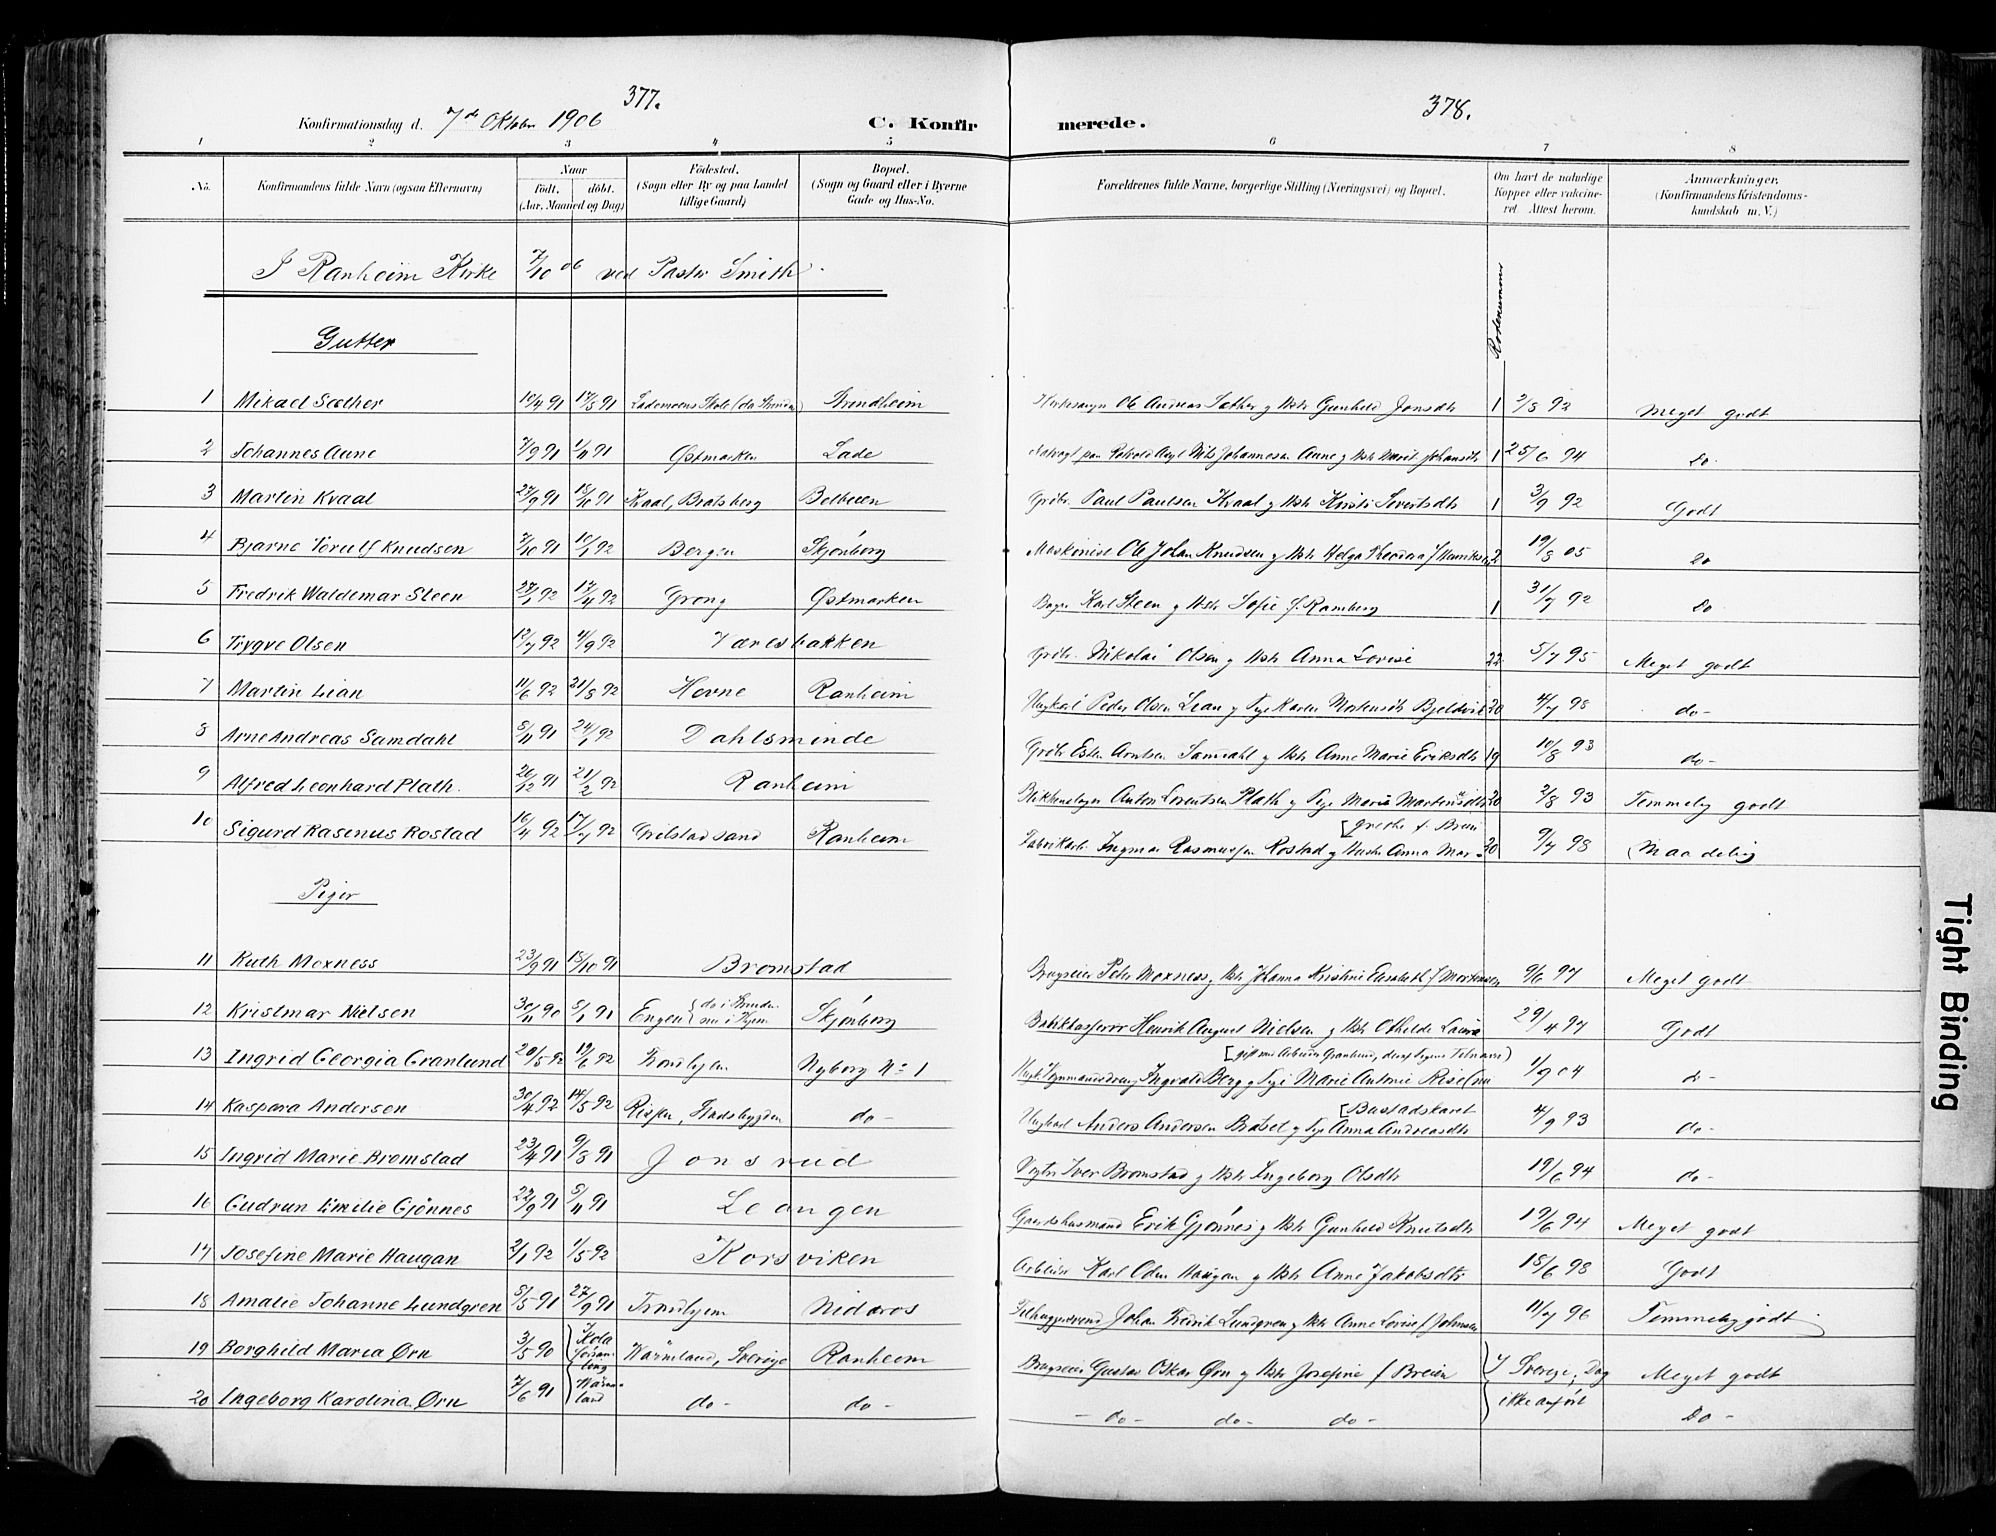 377.
378.
Konfirmationsdag d. 7de Oktober 1906
C. Konfirmerede.
1 2 3 4 5 6 7 8
No.
Konfirmandens fulde Navn (ogsaa Efternavn)
Naar
født. døbt.
(Aar, Maaned og Dag)
Födested.
(Sogn eller By og paa Landet
tillige Gaard)
Bopæl.
(Sogn og Gaard eller i Byerne
Gade og Hus-No.
Forældrenes fulde Navne, borgerlige Stilling (Næringsvei) og Bopæl.
Om havt de naturlige
Kopper eller vakcine-
ret Attest herom.
Anmærkninger.
(Konfirmandens Kristendoms-
kundskab m. V.)
I Ranheim Kirke 7/10 06 ved Pastor Smith.
Rodenummer
Gutter
1 Mikael Sæther 10/4 91 17/5 91 Lademoens Skole (da Strinda) Strindheim Ole Andreas Sæther og Hstr Gunhild Jonsdtr 1 2/8 92 Meget godt
2 Johannes Aune 7/9 91 1/11 91 Østmarken Lade Nils Johannesen Aune og Hstr Marit Johansdtr 1 25/6 94 do
3 Martin Kvaal 27/9 91 18/10 91 Kvaal, Bratsberg Belbuen Grdbr. Paul Paulsen Kvaal og Hstr Kirsti Sivertsdtr 1 3/9 92 Godt
4 Bjarne Torulf Knudsen 7/10 91 10/1 92 Bergen Skjönborg Maskinist Ole Johan Knudsen og Hstr Helga Theodora f. Henriksen 2 19/8 05 do
5 Fredrik Waldemar Steen 27/1 92 17/4 92 Grong Østmarken Bager Karl Steen og Hstr Sofie f. Ramberg 1 31/7 92 do
6 Trygve Olsen 12/7 92 4/9 92 Væresbakken Grdbr. Nikolai Olsen og Hstr Anna Lovise 22 5/7 95 Meget godt
7 Martin Lian 11/6 92 21/8 92 Hevne Ranheim Ungkarl Peder Olsen Lian og Pige Karen Mortensdtr 20 4/7 98 do-
8 Arne Andreas Samdahl 8/11 91 24/1 92 Dahlsminde Grdbr Esten Arntsen Samdahl og Hstr Anne Marie Eriksdtr 19 10/8 93 do-
9 Alfred Leonhard Plath. 26/12 91 21/2 92 Ranheim Blikkenslager Anton Lorentsen Plath og Pige Maria Martensdtr 20 2/8 93 Temmelig godt
10 Sigurd Rasenus Rostad 16/4 92 17/7 92 Grilstadsand Ranheim Fabrikarb. Ingmar Rasmussen Rostad og Hustr Anna Mar- [grethe f. Breii 20 9/7 98 Maadelig
Piger
11 Ruth Moxness 23/9 91 18/10 91 Bromstad Brugseier Peter Moxness og Hstr Johanna Kristine Elisabeth f Mortensen 9/6 97 Meget godt
12 Kristmar Nielsen 30/11 90 5/1 91 Engen {da i Strinden nu i Thjem Skjönborg Henrik August Nielsen og Hstr Othilde Laura 29/4 97 Godt
13 Ingrid Georgia Granlund 20/5 92 19/6 92 Trondhjem Nyborg No 1 Ingvald Berg og Pige Marie Antonie Riise (nu [gift med Arbeider Granlund, deraf Pigens Tilnavn) 1/9 04 do-
14 Kaspara Andersen 30/4 92 14/5 92 Rissen, Stadsbygden do- Ungkarl Anders Andersen Brasel og Pige Anna Andreasdtr [Bustadskaret 4/9 93 do-
15 Ingrid Marie Bromstad 23/4 91 9/8 91 Jonsrud Iver Bromstad og Hstr Ingeborg Olsdtr 19/6 94 do-
16 Gudrun Emilie Gjönnes 22/9 91 5/11 91 Leangen Gaardshusmand Erik Gjönnes og Hstr Gunhild Knutsdtr 19/6 94 Meget godt
17 Josefine Marie Haugan 2/1 92 1/5 92 Korsviken Arbeider Karl Odin Haugan og Hstr Anne Jakobsdtr 15/6 98 Godt
18 Amalie Johanne Lundgren 5/5 91 27/9 91 Trondhjem Nidaros Johan Fredrik Lundgren og Hstr Anne Lovise f Johnsen 11/7 96 Temmelig godt
19 Borghild Maria Ørn 3/5 90 {Kola församling Wärmland Wärmland, Sverige Ranheim Brugseier Gustav Oskar Ørn og Hstr Josefine f Breien {I Sverige, Dag ikke anført Meget godt
20 Ingeborg Karolina Ørn 7/6 91 do- do- - do- do- do- Do-
Tight Binding